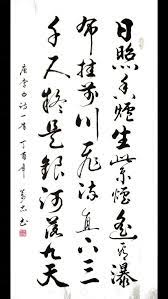 日照香爐生紫煙遙看瀑
布挂前川飛流直下三
千尺疑是銀河落九天
唐李白詩一首 丁酉年 书